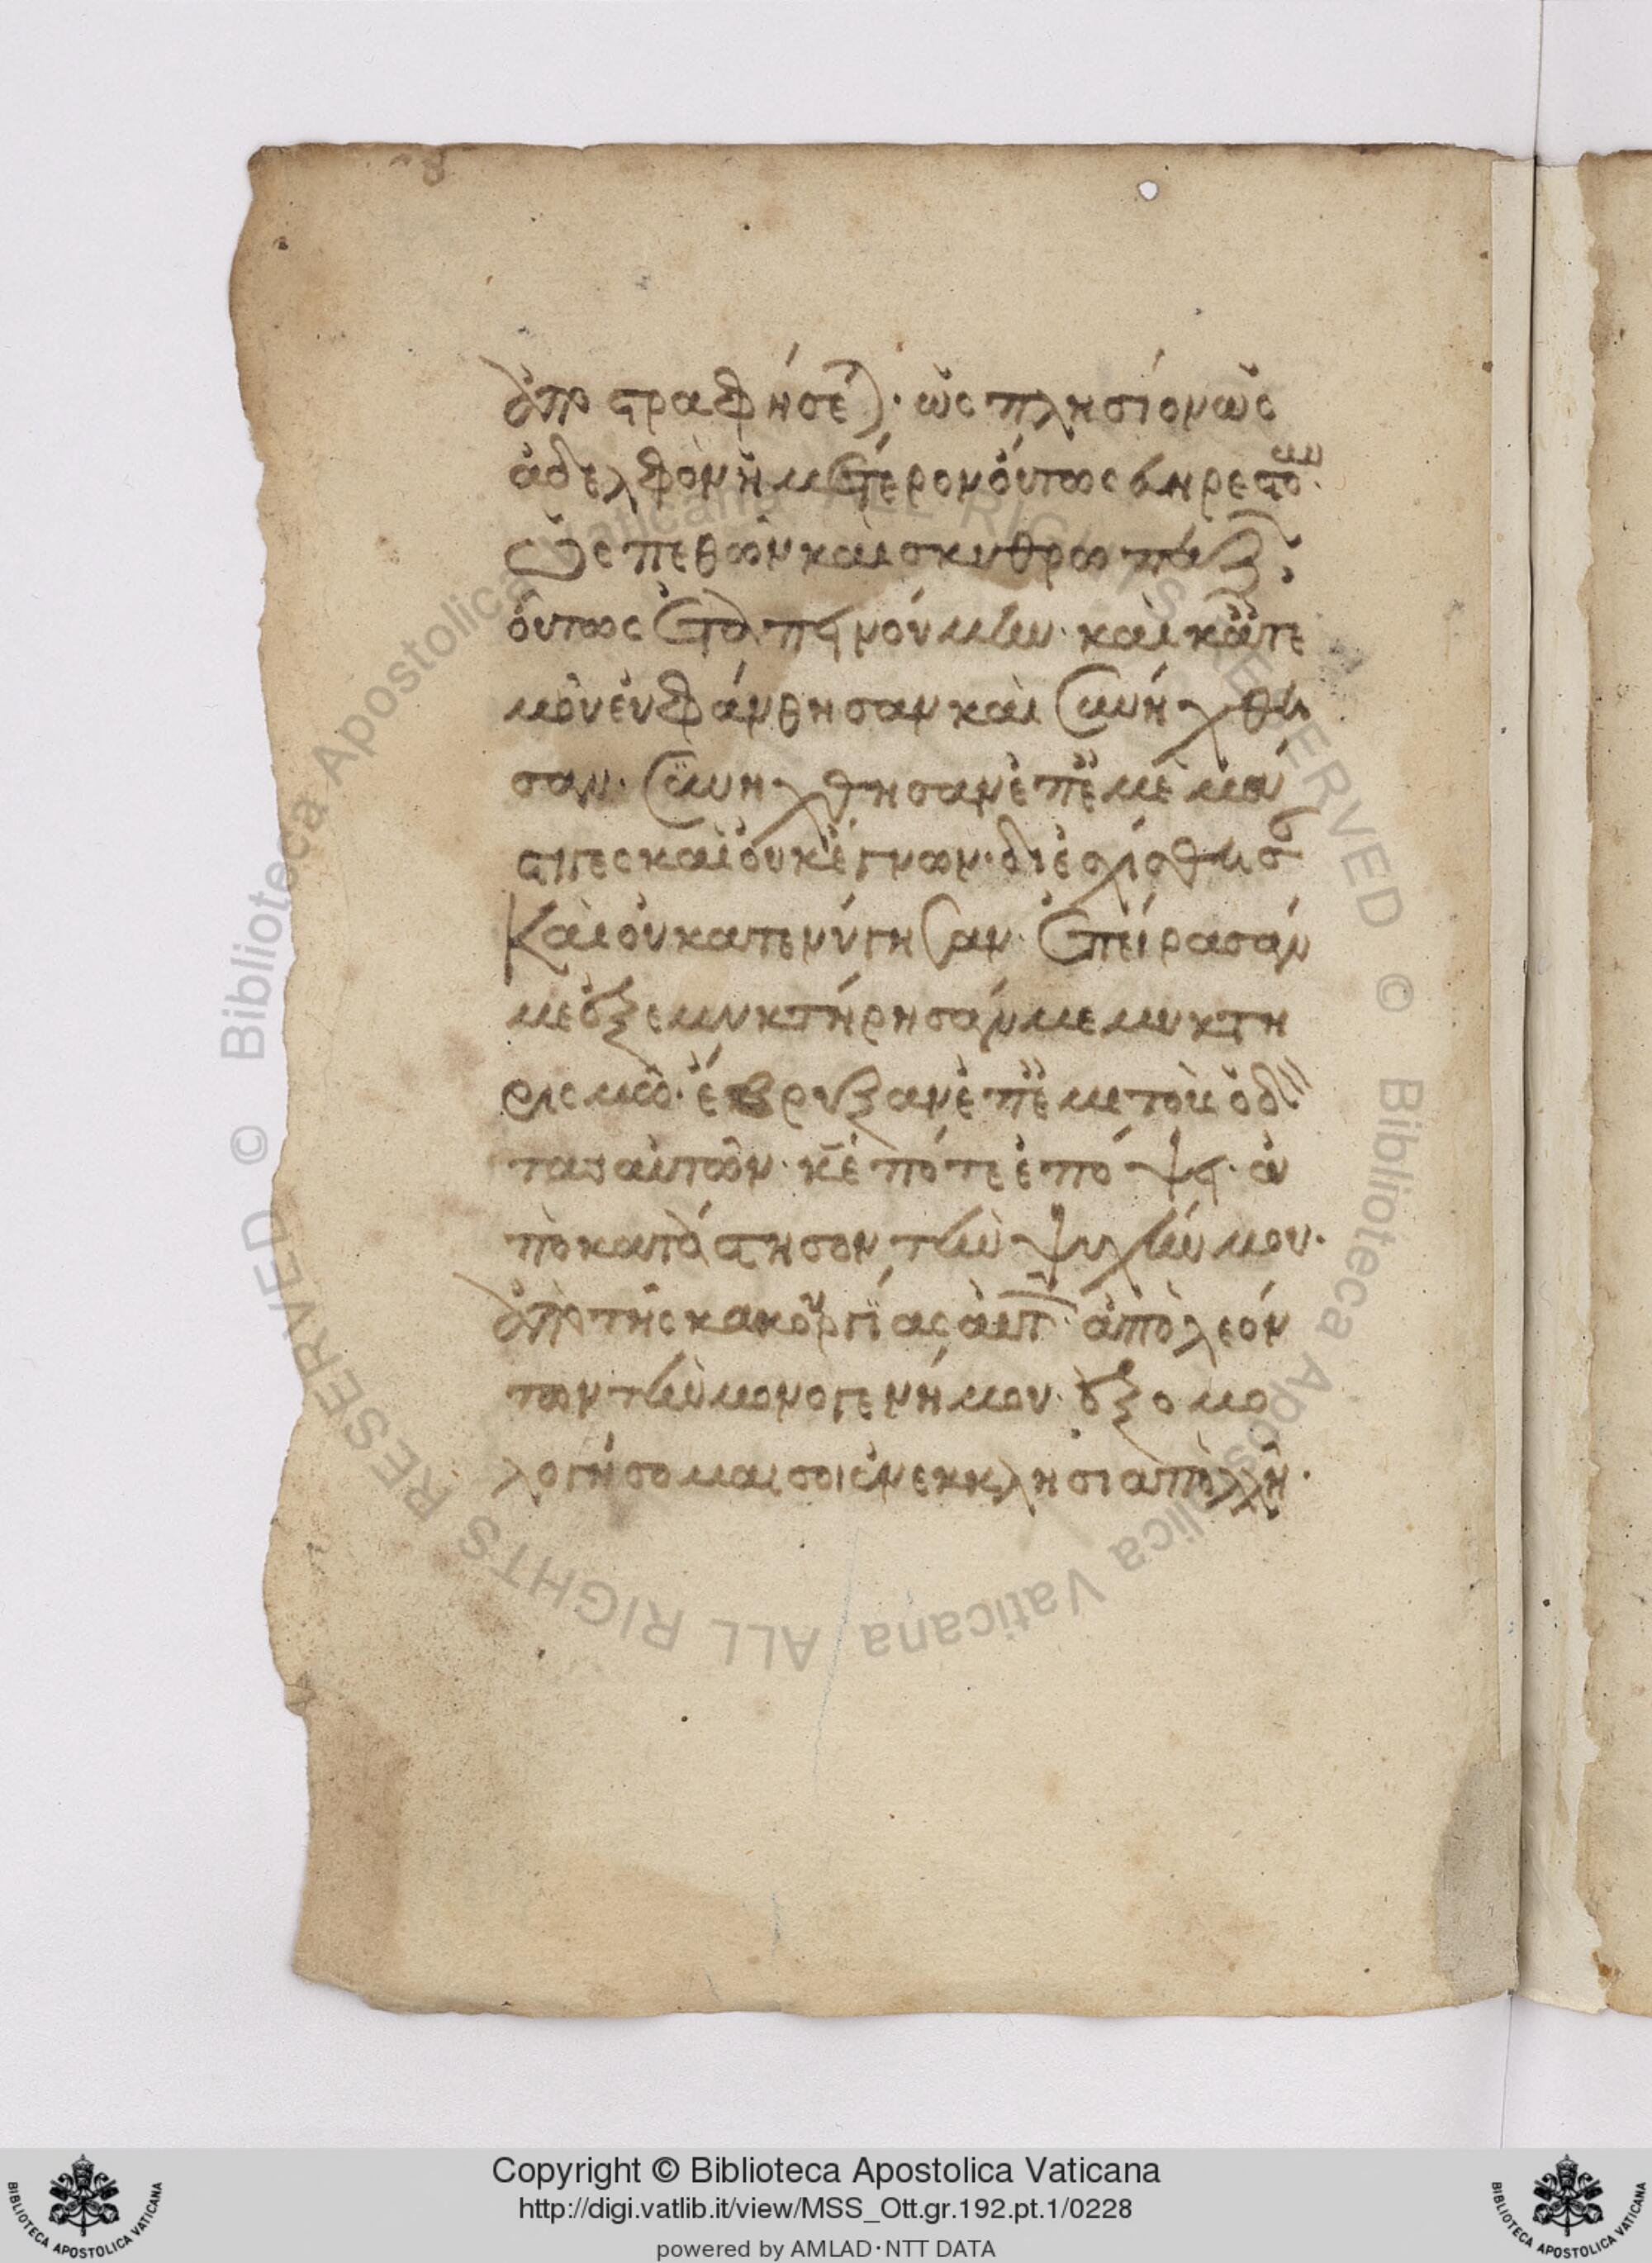 ἀποστραφήσεται· ὡς πλησίον ὡς
ἀδελφὸν ἡμέτερον οὕτως εὐηρέστουν·
ὡς πεθῶν καὶ σκυθρωπάζων
οὕτως ἐταπεινούμην· καὶ κατ' ἐ
μοῦ εὐφράνθησαν καὶ συνήχθη
σαν· συνήχθησαν ἐπ' ἐμὲ μά
στιγες καὶ οὐκ ἔγνων· διεσχίσθησαν
Καὶ οὐ κατενύγησαν· ἐπείρασάν
με ἐξεμυκτήρησάν με μυκτη
ρισμὸ· ἔβρυξαν ἐπ' ἐμὲ τοὺς ὀδόν
τας αὐτῶν· κε πότε ἐπόψει· ἀ
ποκατάστησον τὴν ψυχήν μου·
ἀπὸ τῆς κακουργίας αὐτῶν ἀπὸ λεόν
των τὴν μονογενή μου· ἐξομο
λογήσομαι σοι ἐν εκκλησια πολλῆ·
Biblioteca Apostolica Vaticana ALL RIGHTS RESERVED ©
Copyright © Biblioteca Apostolica Vaticana
http://digi.vatlib.it/view/MSS_Ott.gr.192.pt.1/0228
powered by AMLAD·NTT DATA
BIBLIOTECA APOSTOLICA VATICANA
BIBLIOTECA APOSTOLICA VATICANA